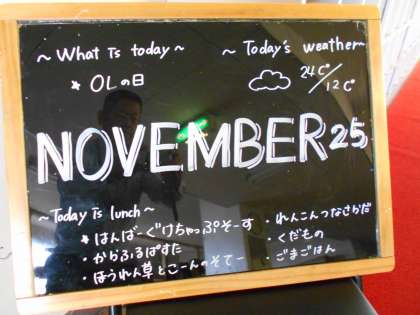 ~ What is today ~
* OLの日
~ Today's weather ~
24C°/12C°
NOVEMBER 25
~Today is lunch~
* はんばーぐけちゃっぷそーす
・からふるぱすた
・ほうれん草とこーんのそてー
・れんこんつなさらだ
・くだもの
・ごまごはん